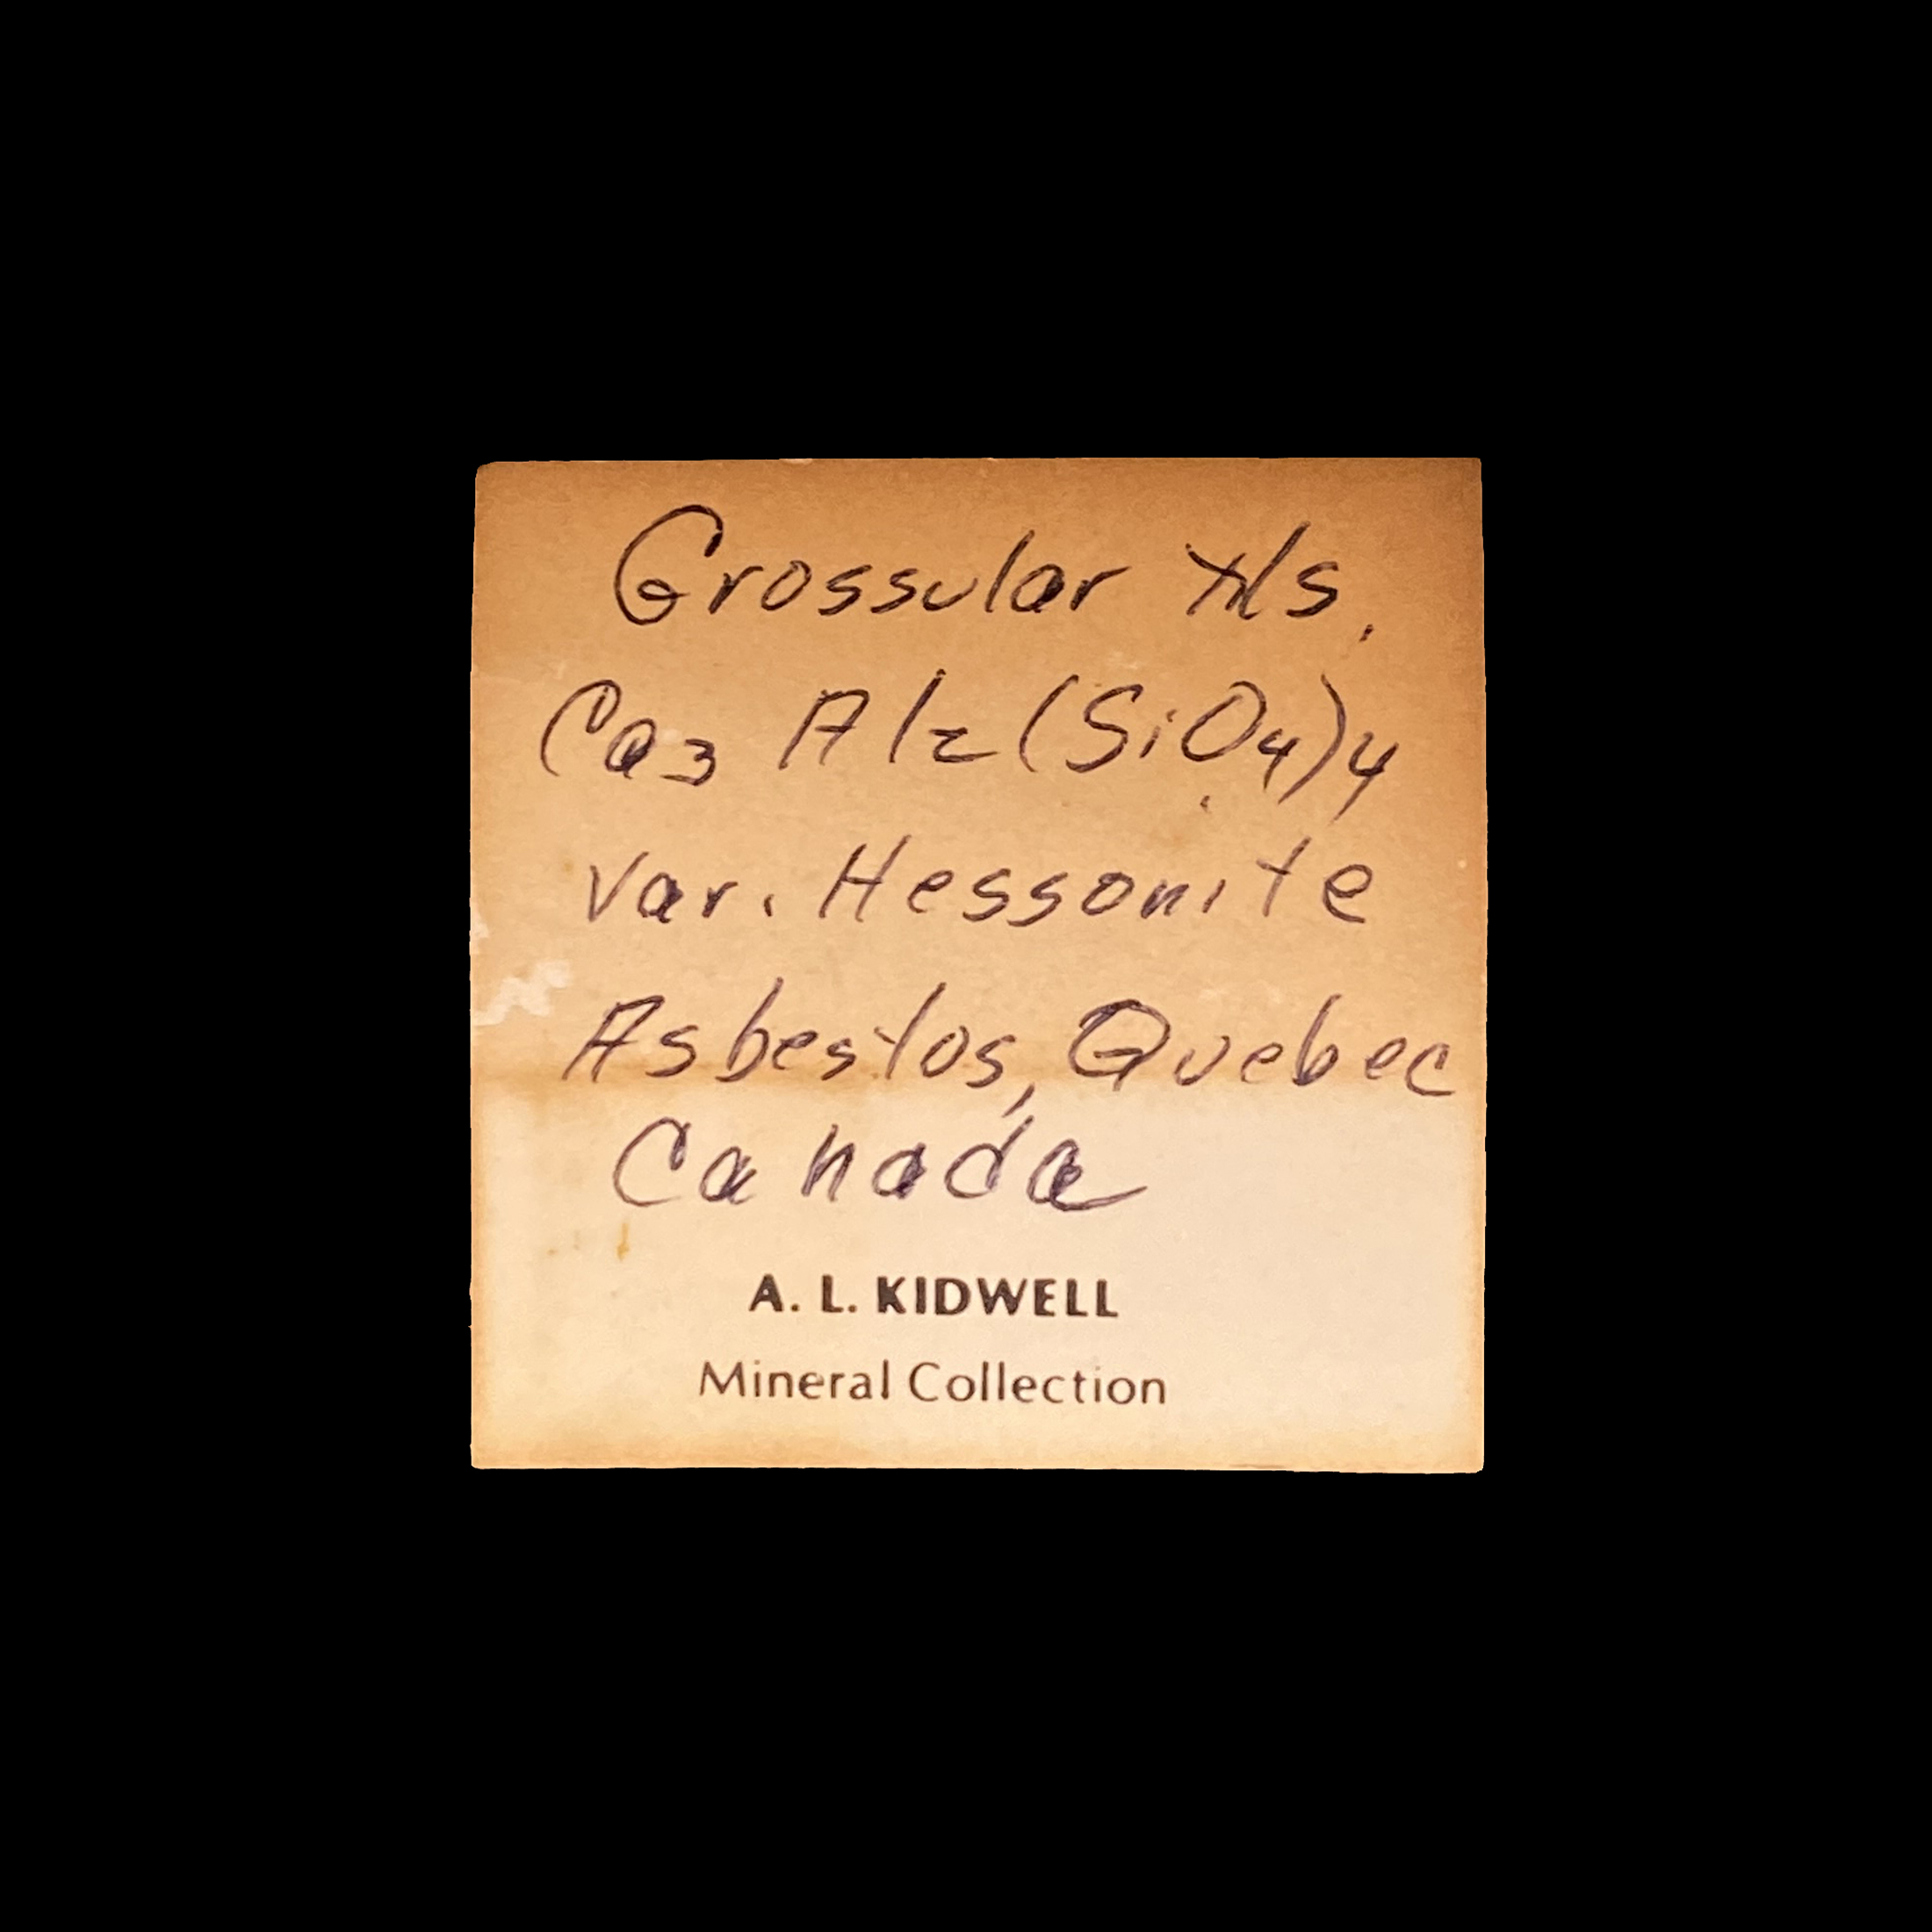 Grossular xls.
Ca3 Al2(SiO4)4
var. Hessonite
Asbestos, Quebec
Canada
A. L. KIDWELL
Mineral Collection